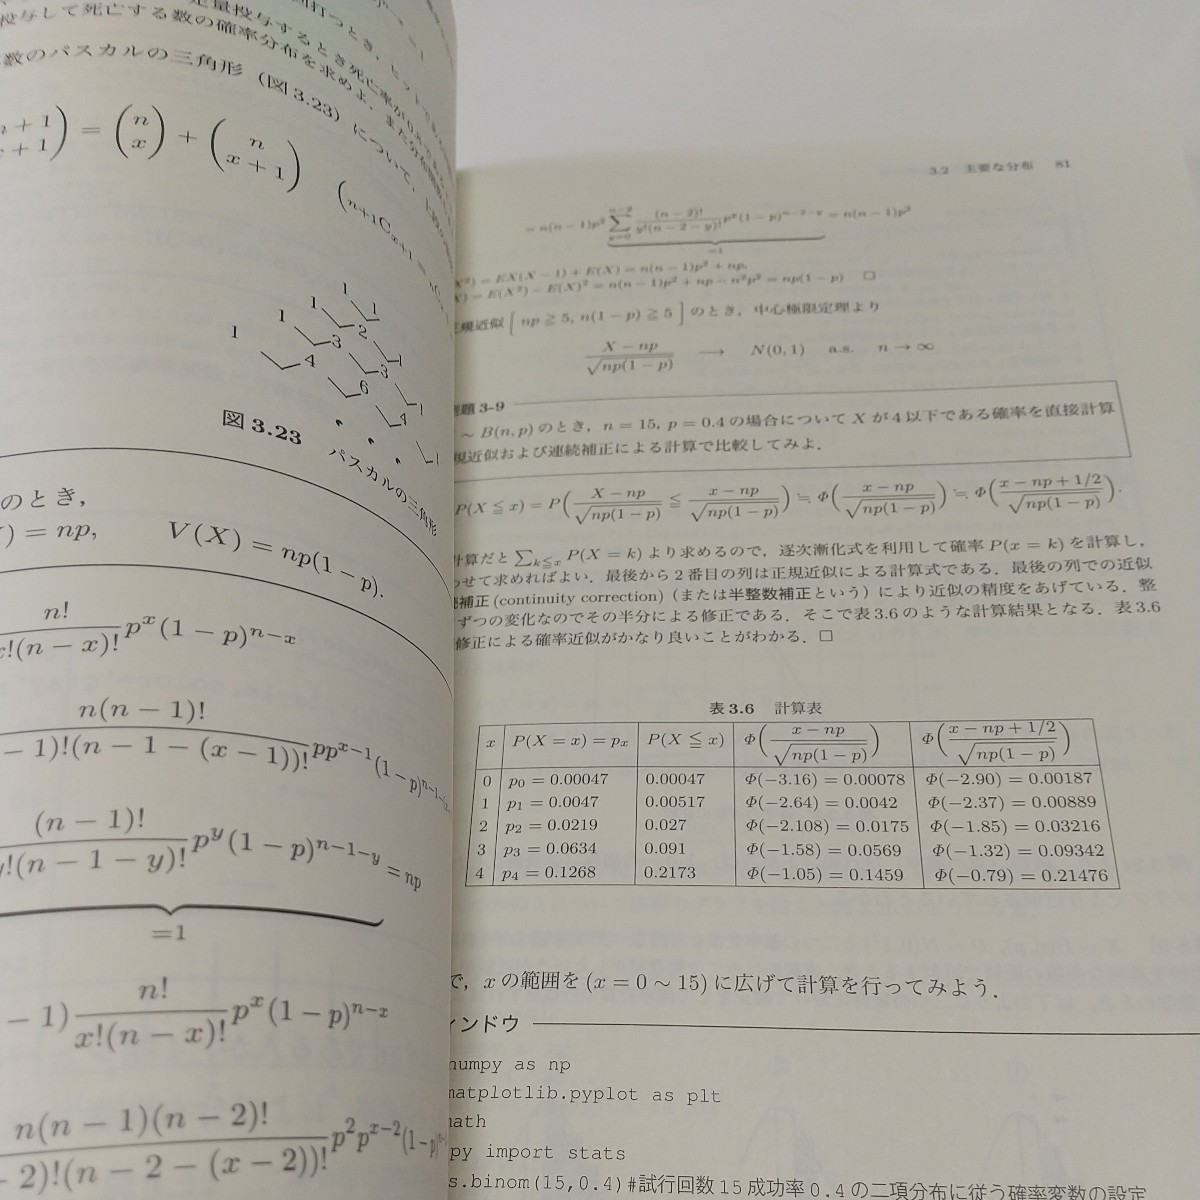 投与して死亡する数の確率分布を求めよ．また分布
数のパスカルの三角形（図3.23）について，
n + 1) = (n x) + (n x + 1) (n+1Cx+1 =
1
1 1
1 2 1
1 3 3 1
4 6 4 1
図 3.23 パスカルの三角形
のとき，
) = np, V(X) = np(1 − p).
n! / x!(n − x)! p^x (1 − p)^{n−x}
n(n − 1)! / − 1)!(n − 1 − (x − 1))! pp^{x−1}(1 − p)
(n − 1)! / y!(n − 1 − y)! p^y (1 − p)^{n−1−y} = np
=1
− 1) n! / x!(n − x)! p^x (1 − p)^{n−x}
n(n − 1)(n − 2)! / − 2)!(n − 2 − (x − 2))! p^2 p^{x−2}(1−p)
3.2 主要な分布 81
= n(n − 1)p^2 Σ (n − 2)! / y!(n − 2 − y)! = n(n − 1)p^2
=1
) = EX(X − 1) + E(X) = n(n − 1)p^2 + np,
) = E(X^2) − E(X)^2 = n(n − 1)p^2 + np − n^2p^2 = np(1 − p) □
規近似 [ np ≧ 5, n(1 − p) ≧ 5 ] のとき，中心極限定理より
X − np / √np(1 − p) ⟶ N(0, 1) a.s. n → ∞
題 3-9
∼ B(n, p) のとき，n = 15, p = 0.4 の場合について X が 4 以下である確率を直接計算
規近似および連続補正による計算で比較してみよ．
P(X ≦ x) = P( X − np / √np(1 − p) ≦ x − np / √np(1 − p) ) ≒ Φ( x − np / √np(1 − p) ) ≒ Φ( x − np + 1/2 / √np(1 − p) ).
計算だと Σ_{k≦x} P(X = k) より求めるので，逐次漸化式を利用して確率 P(x = k) を計算し，
せて求めればよい．最後から 2 番目の列は正規近似による計算式である．最後の列での近似
補正 (continuity correction)（または半整数補正という）により近似の精度をあげている．整
ずつの変化なのでその半分による修正である．そこで表 3.6 のような計算結果となる．表 3.6
修正による確率近似がかなり良いことがわかる．□
表 3.6 計算表
x P(X = x) = p_x P(X ≦ x) Φ( x − np / √np(1 − p) ) Φ( x − np + 1/2 / √np(1 − p) )
0 p_0 = 0.00047 0.00047 Φ(−3.16) = 0.00078 Φ(−2.90) = 0.00187
1 p_1 = 0.0047 0.00517 Φ(−2.64) = 0.0042 Φ(−2.37) = 0.00889
2 p_2 = 0.0219 0.027 Φ(−2.108) = 0.0175 Φ(−1.85) = 0.03216
3 p_3 = 0.0634 0.091 Φ(−1.58) = 0.0569 Φ(−1.32) = 0.09342
4 p_4 = 0.1268 0.2173 Φ(−1.05) = 0.1459 Φ(−0.79) = 0.21476
で，x の範囲を (x = 0 ∼ 15) に広げて計算を行ってみよう．
ィンドウ
numpy as np
matplotlib.pyplot as plt
math
py import stats
s.binom(15,0.4)#試行回数15成功率0.4の二項分布に従う確率変数の設定